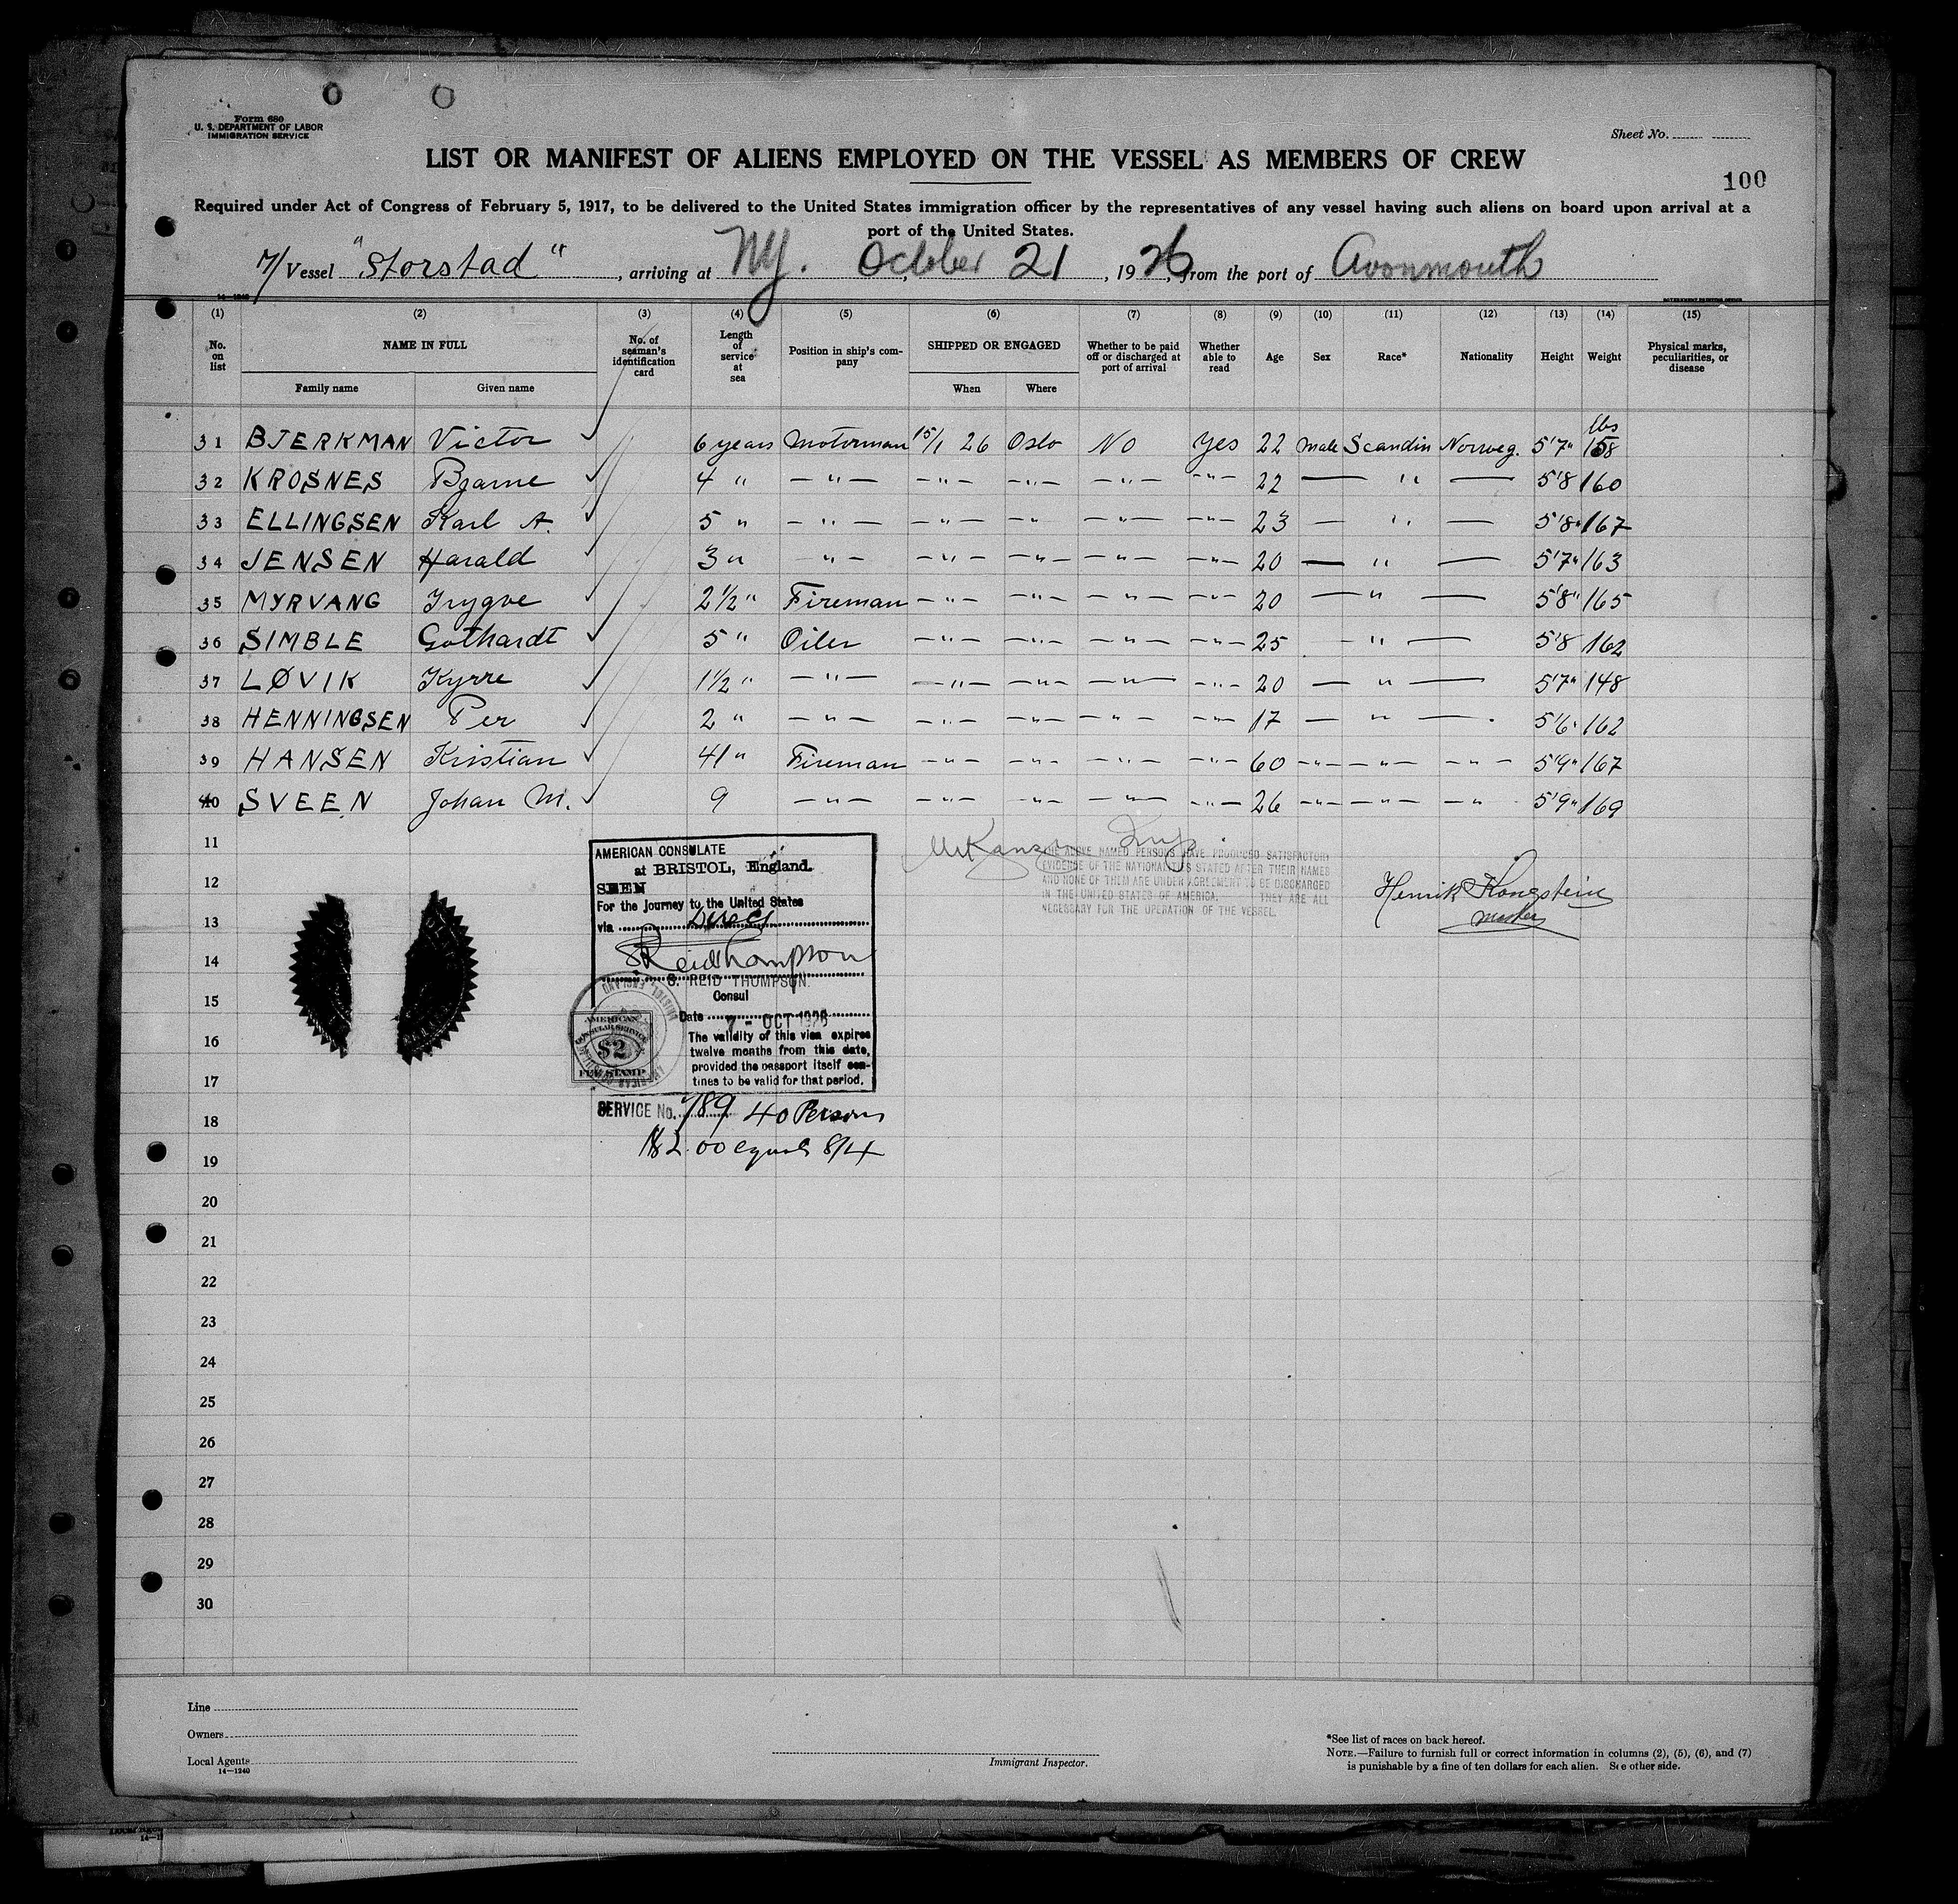 Form 680
U. S. DEPARTMENT OF LABOR
IMMIGRATION SERVICE
Sheet No.
LIST OR MANIFEST OF ALIENS EMPLOYED ON THE VESSEL AS MEMBERS OF CREW
100
Required under Act of Congress of February 5, 1917, to be delivered to the United States immigration officer by the representatives of any vessel having such aliens on board upon arrival at a
port of the United States.
M/Vessel "Storstad", arriving at NY. October 21, 1926, from the port of Avonmouth
14—1240 GOVERNMENT PRINTING OFFICE
(1) (2) (3) (4) (5) (6) (7) (8) (9) (10) (11) (12) (13) (14) (15)
No. on list NAME IN FULL No. of seaman's identification card Length of service at sea Position in ship's company SHIPPED OR ENGAGED Whether to be paid off or discharged at port of arrival Whether able to read Age Sex Race* Nationality Height Weight Physical marks, peculiarities, or disease
Family name Given name When Where
lbs
31 BJERKMAN Victor ✓ 6 years Motorman 15/1 26 Oslo No Yes 22 Male Scandin Norweg. 5'7" 158
32 KROSNES Bjarne ✓ 4 " — " — — " — — " — — " — — " — 22 — " — 5'8 160
33 ELLINGSEN Karl A. ✓ 5 " — " — — " — — " — — " — — " — 23 — " — 5'8" 167
34 JENSEN Harald ✓ 3 " " — — " — — " — — " — — " — 20 — " — 5'7" 163
35 MYRVANG Trygve ✓ 2 1/2 " Fireman — " — — " — — " — — " — 20 — " — 5'8" 165
36 SIMBLE Gothardt ✓ 5 " Oiler — " — — " — — " — — " — 25 — " — 5'8 162
37 LØVIK Kyrre ✓ 1 1/2 " — " — — " — — " — — " — — " — 20 — " — 5'7" 148
38 HENNINGSEN Per ✓ 2 " — " — — " — — " — — " — — " — 17 — " — 5'6" 162
39 HANSEN Kristian ✓ 41 " Fireman — " — — " — — " — — " — 60 — " — — " — — " — 5'9" 167
40 SVEEN Johan M. ✓ 9 — " — — " — — " — — " — — " — 26 — " — — " — — " 5'9" 169
11
12
13
14
15
16
17
18
19
20
21
22
23
24
25
26
27
28
29
30
AMERICAN CONSULATE
at BRISTOL, England.
SEEN
For the journey to the United States
via direct
S Reid Thompson
S. REID THOMPSON.
Consul
Date 7 - OCT 1926
The validity of this visa expires
twelve months from this date,
provided the passport itself con-
tinues to be valid for that period.
AMERICAN
CONSULAR SERVICE
$2
FEE STAMP
SERVICE No. 789 40 Persons
$2.00 equals 8/4
THE ABOVE NAMED PERSONS HAVE PRODUCED SATISFACTORY
EVIDENCE OF THE NATIONALITIES STATED AFTER THEIR NAMES
AND NONE OF THEM ARE UNDER AGREEMENT TO BE DISCHARGED
IN THE UNITED STATES OF AMERICA. THEY ARE ALL
NECESSARY FOR THE OPERATION OF THE VESSEL.
Henrik Kongstein
Master
Line
Owners
Local Agents
14—1240
Immigrant Inspector.
*See list of races on back hereof.
NOTE.—Failure to furnish full or correct information in columns (2), (5), (6), and (7)
is punishable by a fine of ten dollars for each alien. See other side.